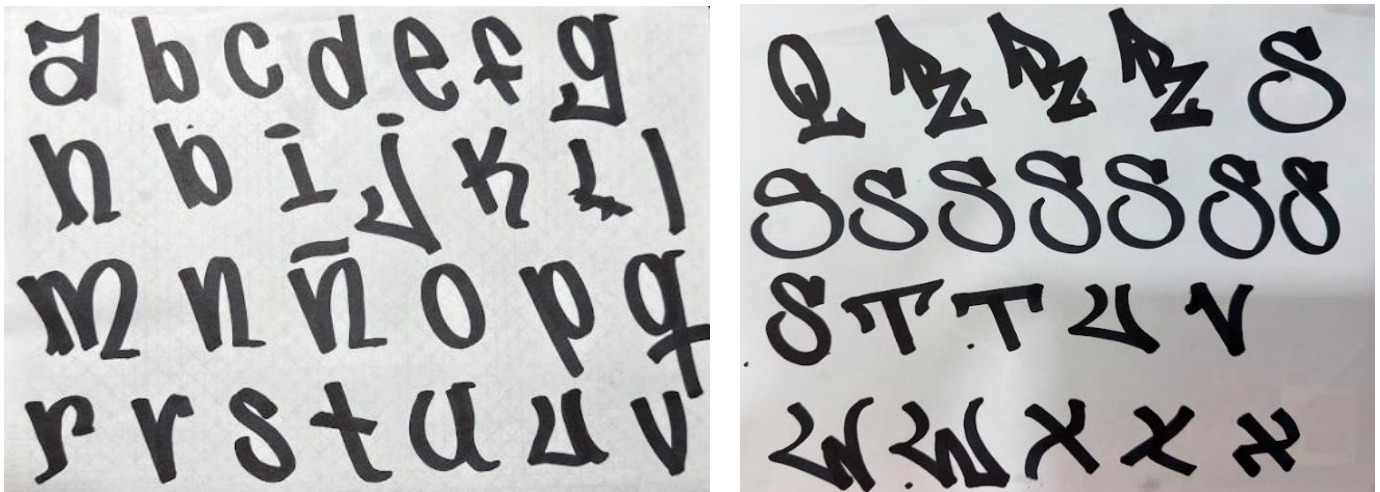 a b c d e f g
h b i j k l l
m n ñ o p q
r r s t u u v
Q R R R S
S S S S S S S
S T T U V
W W X X X